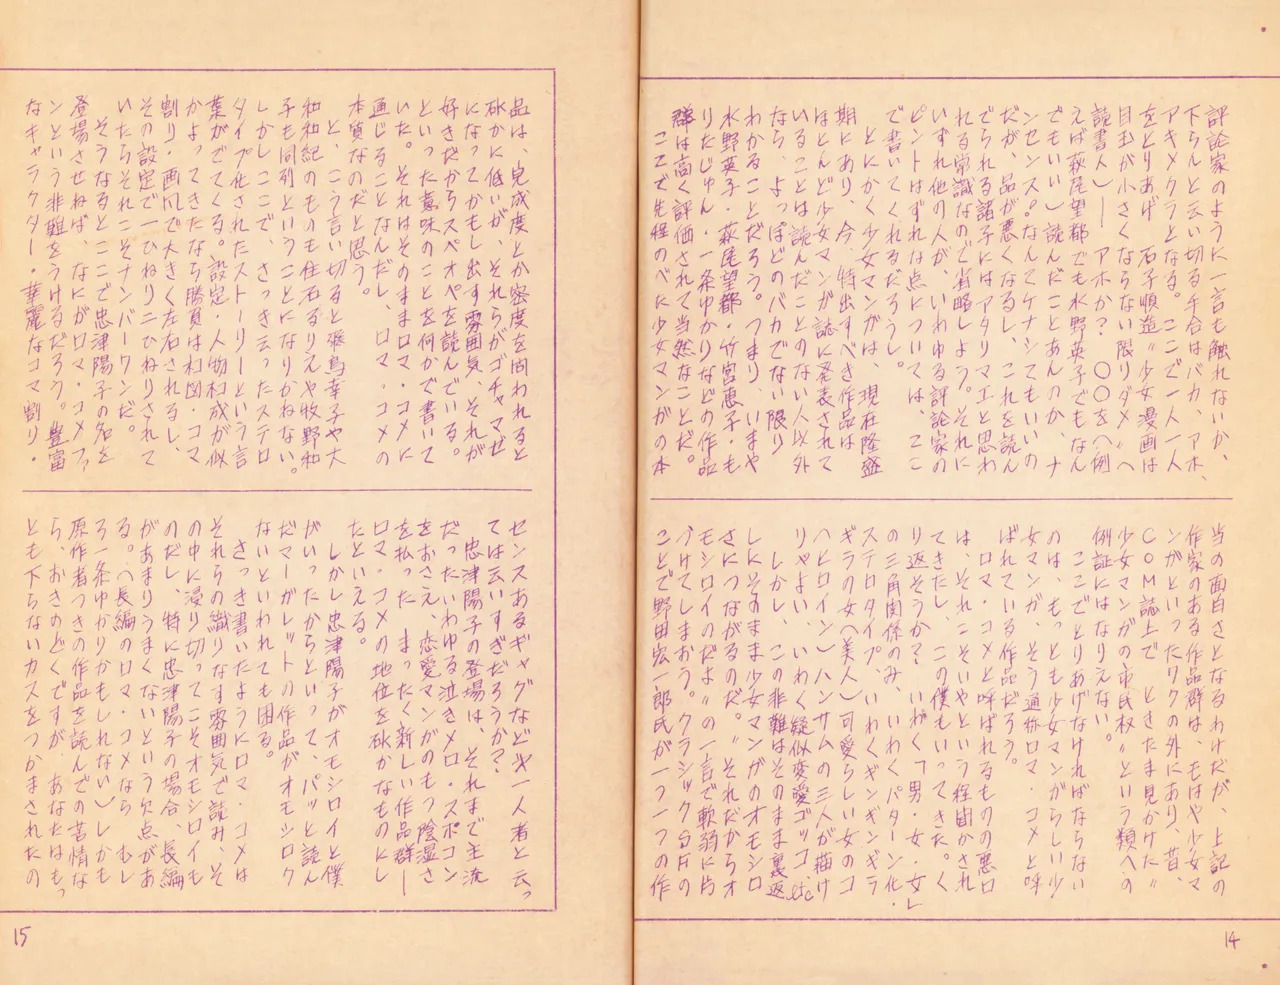 評論家のように一言も触れないか、
下らんと云い切る手合はバカ、アホ、
アキメクラとなる。ここで一人一人
をとりあげ 石子順造〃少女漫画は
目玉が小さくならない限りダメ〃へ
読書人)── アホか? 〇〇を(例
えば萩尾望都でも水野英子でもなん
でもいい)読んだことあんのか、ナ
ンセンス。なんてケナシてもいいの
だが、品が悪くなるし、これを読ん
でられる諸子にはアタリマエと思わ
れる常識なので省略しよう。それに
いずれ他の人が、いわゆる評論家の
ピントはずれな点については、ここ
で書いてくれるだろうし
とにかく少女マンガは、現在隆盛
期にあり、今、特出すべき作品は
ほとんど少女マンガ誌に発表されて
いることは読んだことのない人以外
なら、よっぽどのバカでない限り
わかることだろう。つまり、いまや
水野英子・萩尾望都・竹宮恵子・も
りたじゅん・一条ゆかりなどの作品
群は高く評価されて当然なことだ。
ここで先程のべた少女マンガの本
当の面白さとなるわけだが、上記の
作家のある作品群は、もはや少女マ
ンガといったワクの外にあり、昔、
COM誌上で ときたま見かけた〃
少女マンガの市民权〃という類への
例証にはなりえない。
ここでとりあげなければならない
のは、もっとも少女マンガらしい少
女マンガ、そう通称ロマ・コメと呼
ばれている作品だろう。
ロマ・コメと呼ばれるものの悪口
は、それこそいやという程聞かされ
てきたし、この僕もいってきた。く
り返そうか? いわく「男・女・女」
の三角関係のみ、いわくパターン化・
ステロタイプ、いわくギンギンギラ
ギラの女(美人)可愛らしい女のコ
(ヒロイン)ハンサムの三人が描け
りゃよい、いわく疑似恋愛ゴッコ、etc
しかし、この非難はそのまま裏返
しにそのまま少女マンガのオモシロ
さにつながるのだ。〃それだからオ
モシロイのだよ〃の一言で軟弱に片
づけてしまおう。クラシックSFの
ことで野田宏一郎氏が一つ一つの作
品は、完成度とか密度を問われると
确かに低いが、それらがゴチャマゼ
になってかもし出す雰囲気、それが
好きだからスペオペを読んでいる。
といった意味のことを何かで書いて
いた。それはそのままロマ・コメに
通じることなんだし、ロマ・コメの
本質なのだと思う。
と、こう言い切ると飛鳥幸子や大
和和紀のものも住石るりえや牧野和
子も同列ということになりかねない。
しかしここで、さっき云ったステロ
タイプ化されたストーリーという言
葉がでてくる。設定・人物构成が似
かよってきたなら勝負は构図・コマ
割り・画风で大きく左右されるし、
その設定で一ひねり二ひねりされて
いたらそれこそナンバーワンだ。
そうなるとここで忠津陽子の名を
登場させねば、なにがロマ・コメファ
ンという非難をうけるだろう。豊富
なキャラクター・華麗なコマ割り・
センスあるギャグなど才一人者と云っ
ては云いすぎだろうか?
忠津陽子の登場は、それまで主流
だったいわゆる泣きメロ・スポコン
をおさえ、恋愛マンガのもつ陰湿さ
を払った まったく新しい作品群─
ロマ・コメの地位を确かなものにし
たといえる。
しかし忠津陽子がオモシロイと僕
がいったからといって、パッと読ん
だマーガレットの作品がオモシロク
ないといわれても困る。
さっき書いたようにロマ・コメは
それらの織りなす雰囲気で読み、そ
の中に浸り切ってこそオモシロイも
のだし、特に忠津陽子の場合、長編
があまりうまくないという欠点があ
る。(長編のロマ・コメなら むし
ろ一条ゆかりかもしれない)しかも
原作者つきの作品を読んでの苦情な
ら、おきのどくですが、あなたはもっ
とも下らないカスをつかまされたの
15
14